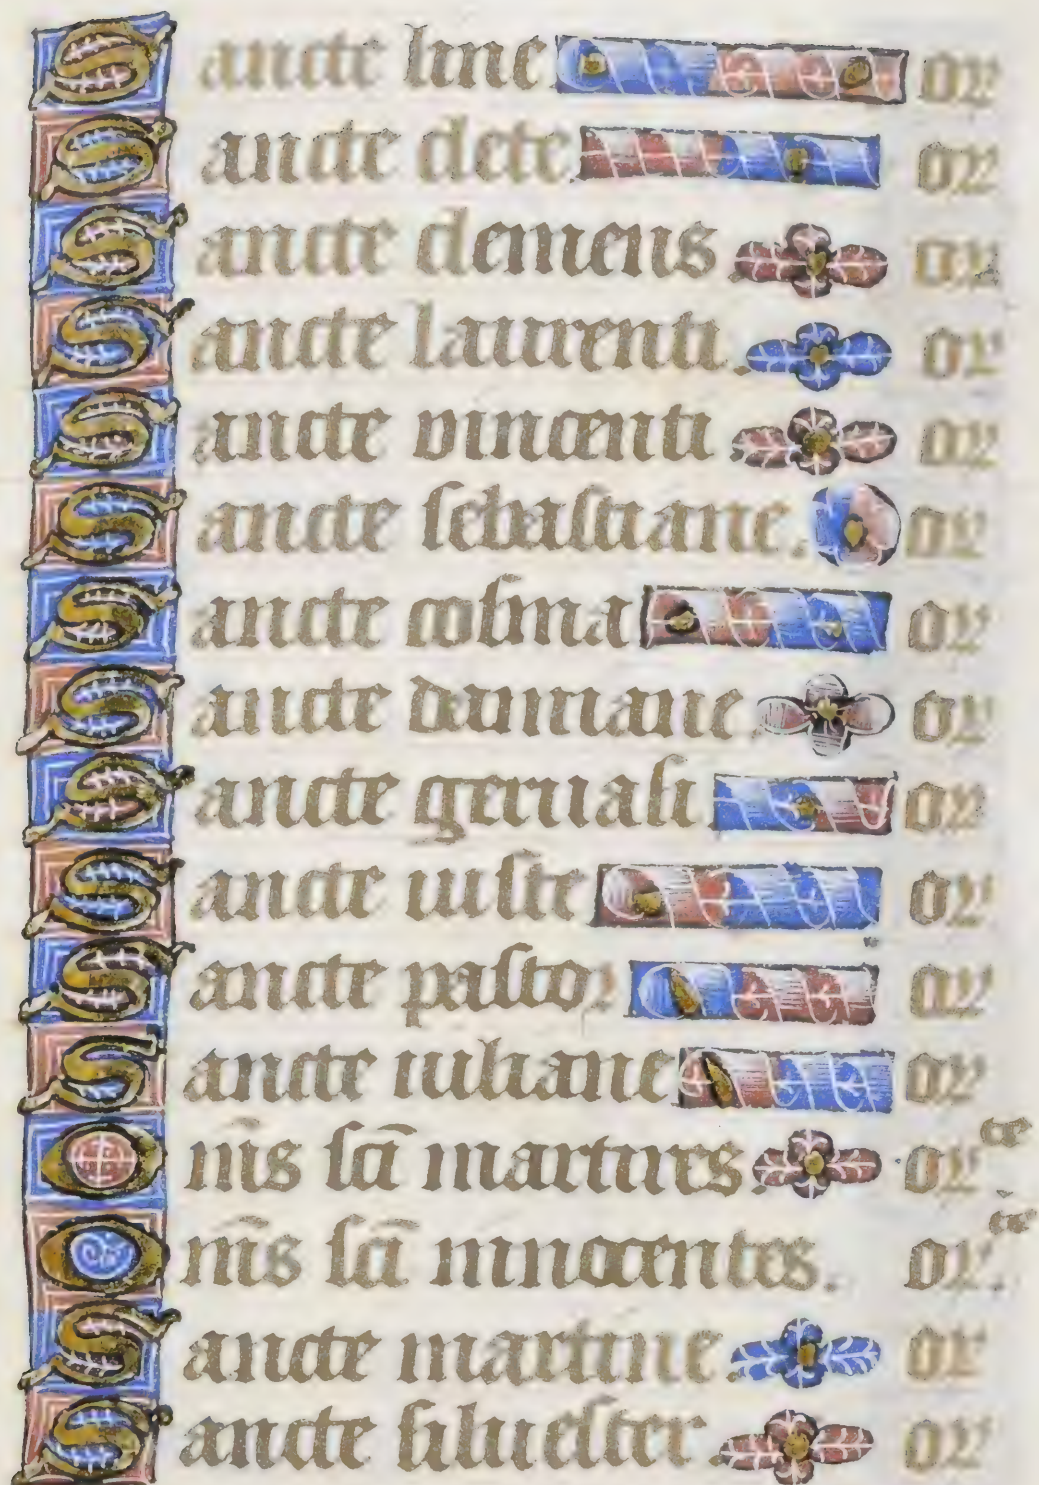 Sancte line or
Sancte clete or
Sancte clemens or
Sancte laurenti. or
Sancte vincenti or
Sancte sebastiane. or
Sancte cosma or
Sancte damiane. or
Sancte geruasi or
Sancte iuste or
Sancte pastor or
Sancte iuliane or
Om̄s sc̄i martires. or te
Om̄s sc̄i innocentes. or. te
Sancte martine. or
Sancte siluester. or